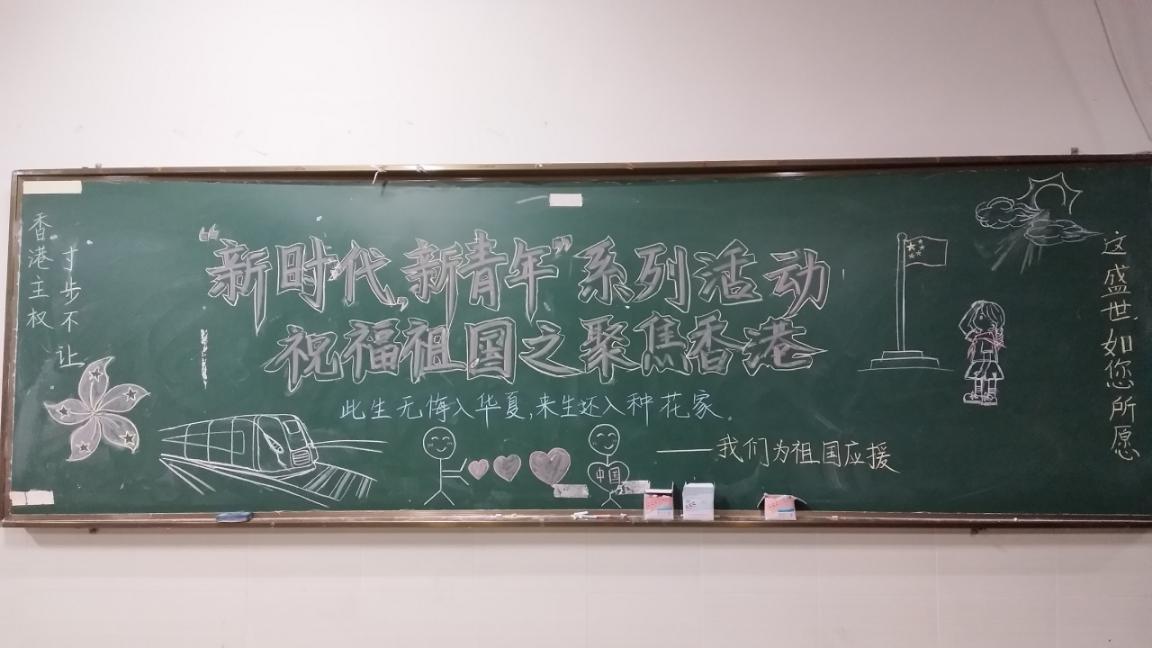 香港主权
寸步不让
“新时代,新青年”系列活动
祝福祖国之聚焦香港
此生无悔入华夏,来生还入种花家。
中国
——我们为祖国应援
这盛世如您所愿